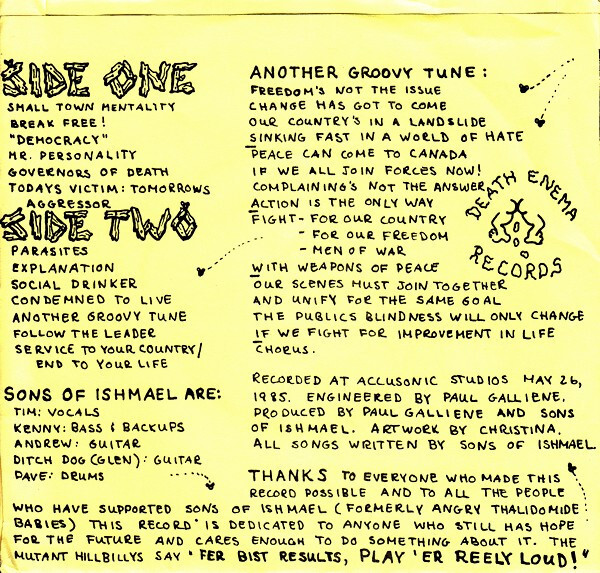 SIDE ONE
SMALL TOWN MENTALITY
BREAK FREE!
"DEMOCRACY"
MR. PERSONALITY
GOVERNORS OF DEATH
TODAYS VICTIM: TOMORROWS
AGGRESSOR
SIDE TWO
PARASITES
EXPLANATION
SOCIAL DRINKER
CONDEMNED TO LIVE
ANOTHER GROOVY TUNE
FOLLOW THE LEADER
SERVICE TO YOUR COUNTRY/
END TO YOUR LIFE
SONS OF ISHMAEL ARE:
TIM: VOCALS
KENNY: BASS & BACKUPS
ANDREW: GUITAR
DITCH DOG (GLEN): GUITAR
DAVE: DRUMS
ANOTHER GROOVY TUNE:
FREEDOM'S NOT THE ISSUE
CHANGE HAS GOT TO COME
OUR COUNTRY'S IN A LANDSLIDE
SINKING FAST IN A WORLD OF HATE
PEACE CAN COME TO CANADA
IF WE ALL JOIN FORCES NOW!
COMPLAINING'S NOT THE ANSWER
ACTION IS THE ONLY WAY
FIGHT - FOR OUR COUNTRY
- FOR OUR FREEDOM
- MEN OF WAR
WITH WEAPONS OF PEACE
OUR SCENES MUST JOIN TOGETHER
AND UNIFY FOR THE SAME GOAL
THE PUBLICS BLINDNESS WILL ONLY CHANGE
IF WE FIGHT FOR IMPROVEMENT IN LIFE
CHORUS.
DEATH ENEMA
RECORDS
RECORDED AT ACCUSONIC STUDIOS MAY 26,
1985. ENGINEERED BY PAUL GALLIENE.
PRODUCED BY PAUL GALLIENE AND SONS
OF ISHMAEL. ARTWORK BY CHRISTINA.
ALL SONGS WRITTEN BY SONS OF ISHMAEL
THANKS TO EVERYONE WHO MADE THIS
RECORD POSSIBLE AND TO ALL THE PEOPLE
WHO HAVE SUPPORTED SONS OF ISHMAEL (FORMERLY ANGRY THALIDOMIDE
BABIES) THIS RECORD IS DEDICATED TO ANYONE WHO STILL HAS HOPE
FOR THE FUTURE AND CARES ENOUGH TO DO SOMETHING ABOUT IT. THE
MUTANT HILLBILLYS SAY "FER BIST RESULTS, PLAY 'ER REELY LOUD!"